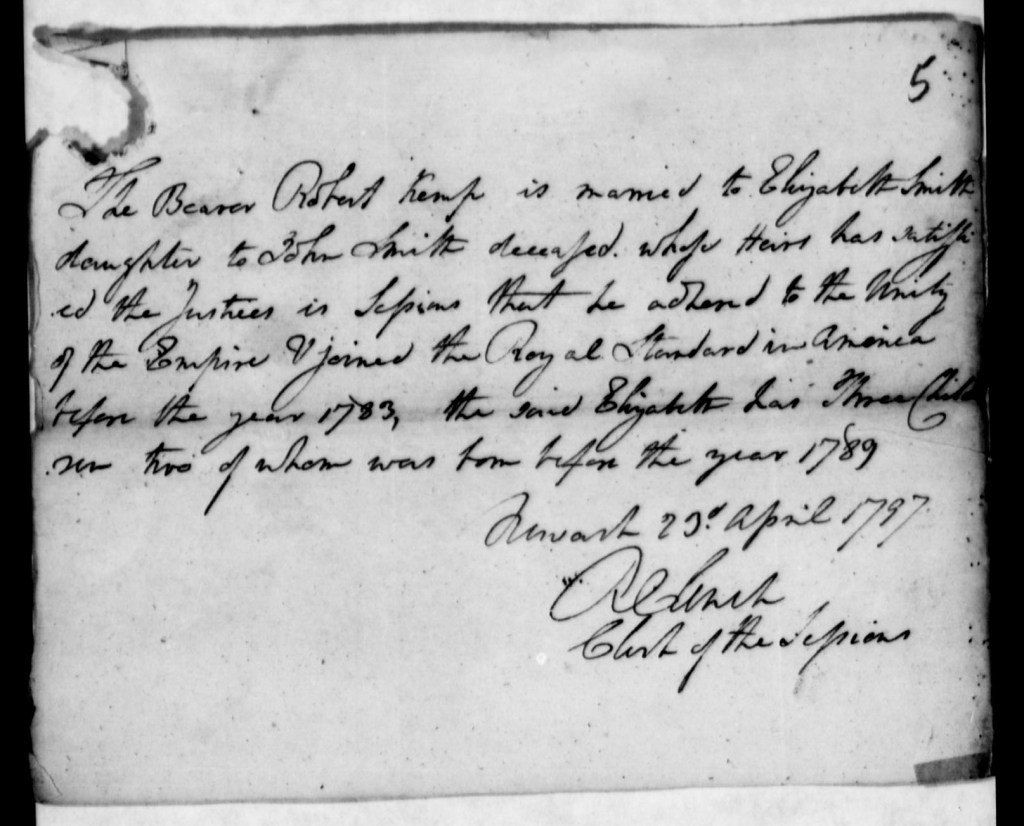 5
The Bearer Robert Kemp is married to Elizabeth Smith
daughter to John Smith deceased. whose Heirs has satisfi
ed the Justices is Sessions that he adhered to the Unity
of the Empire & joined the Royal Standard in America
before the year 1783, the said Elizabeth has Three Child
ren two of whom was born before the year 1789
Newark 23d April 1797.
Clerk of the Sessions